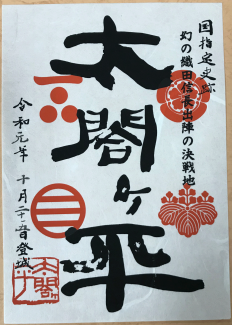 国指定史跡
幻の織田信長出陣の決戦地
太閤ヶ平
令和元年 十月二十二日登城
太閤ヶ平